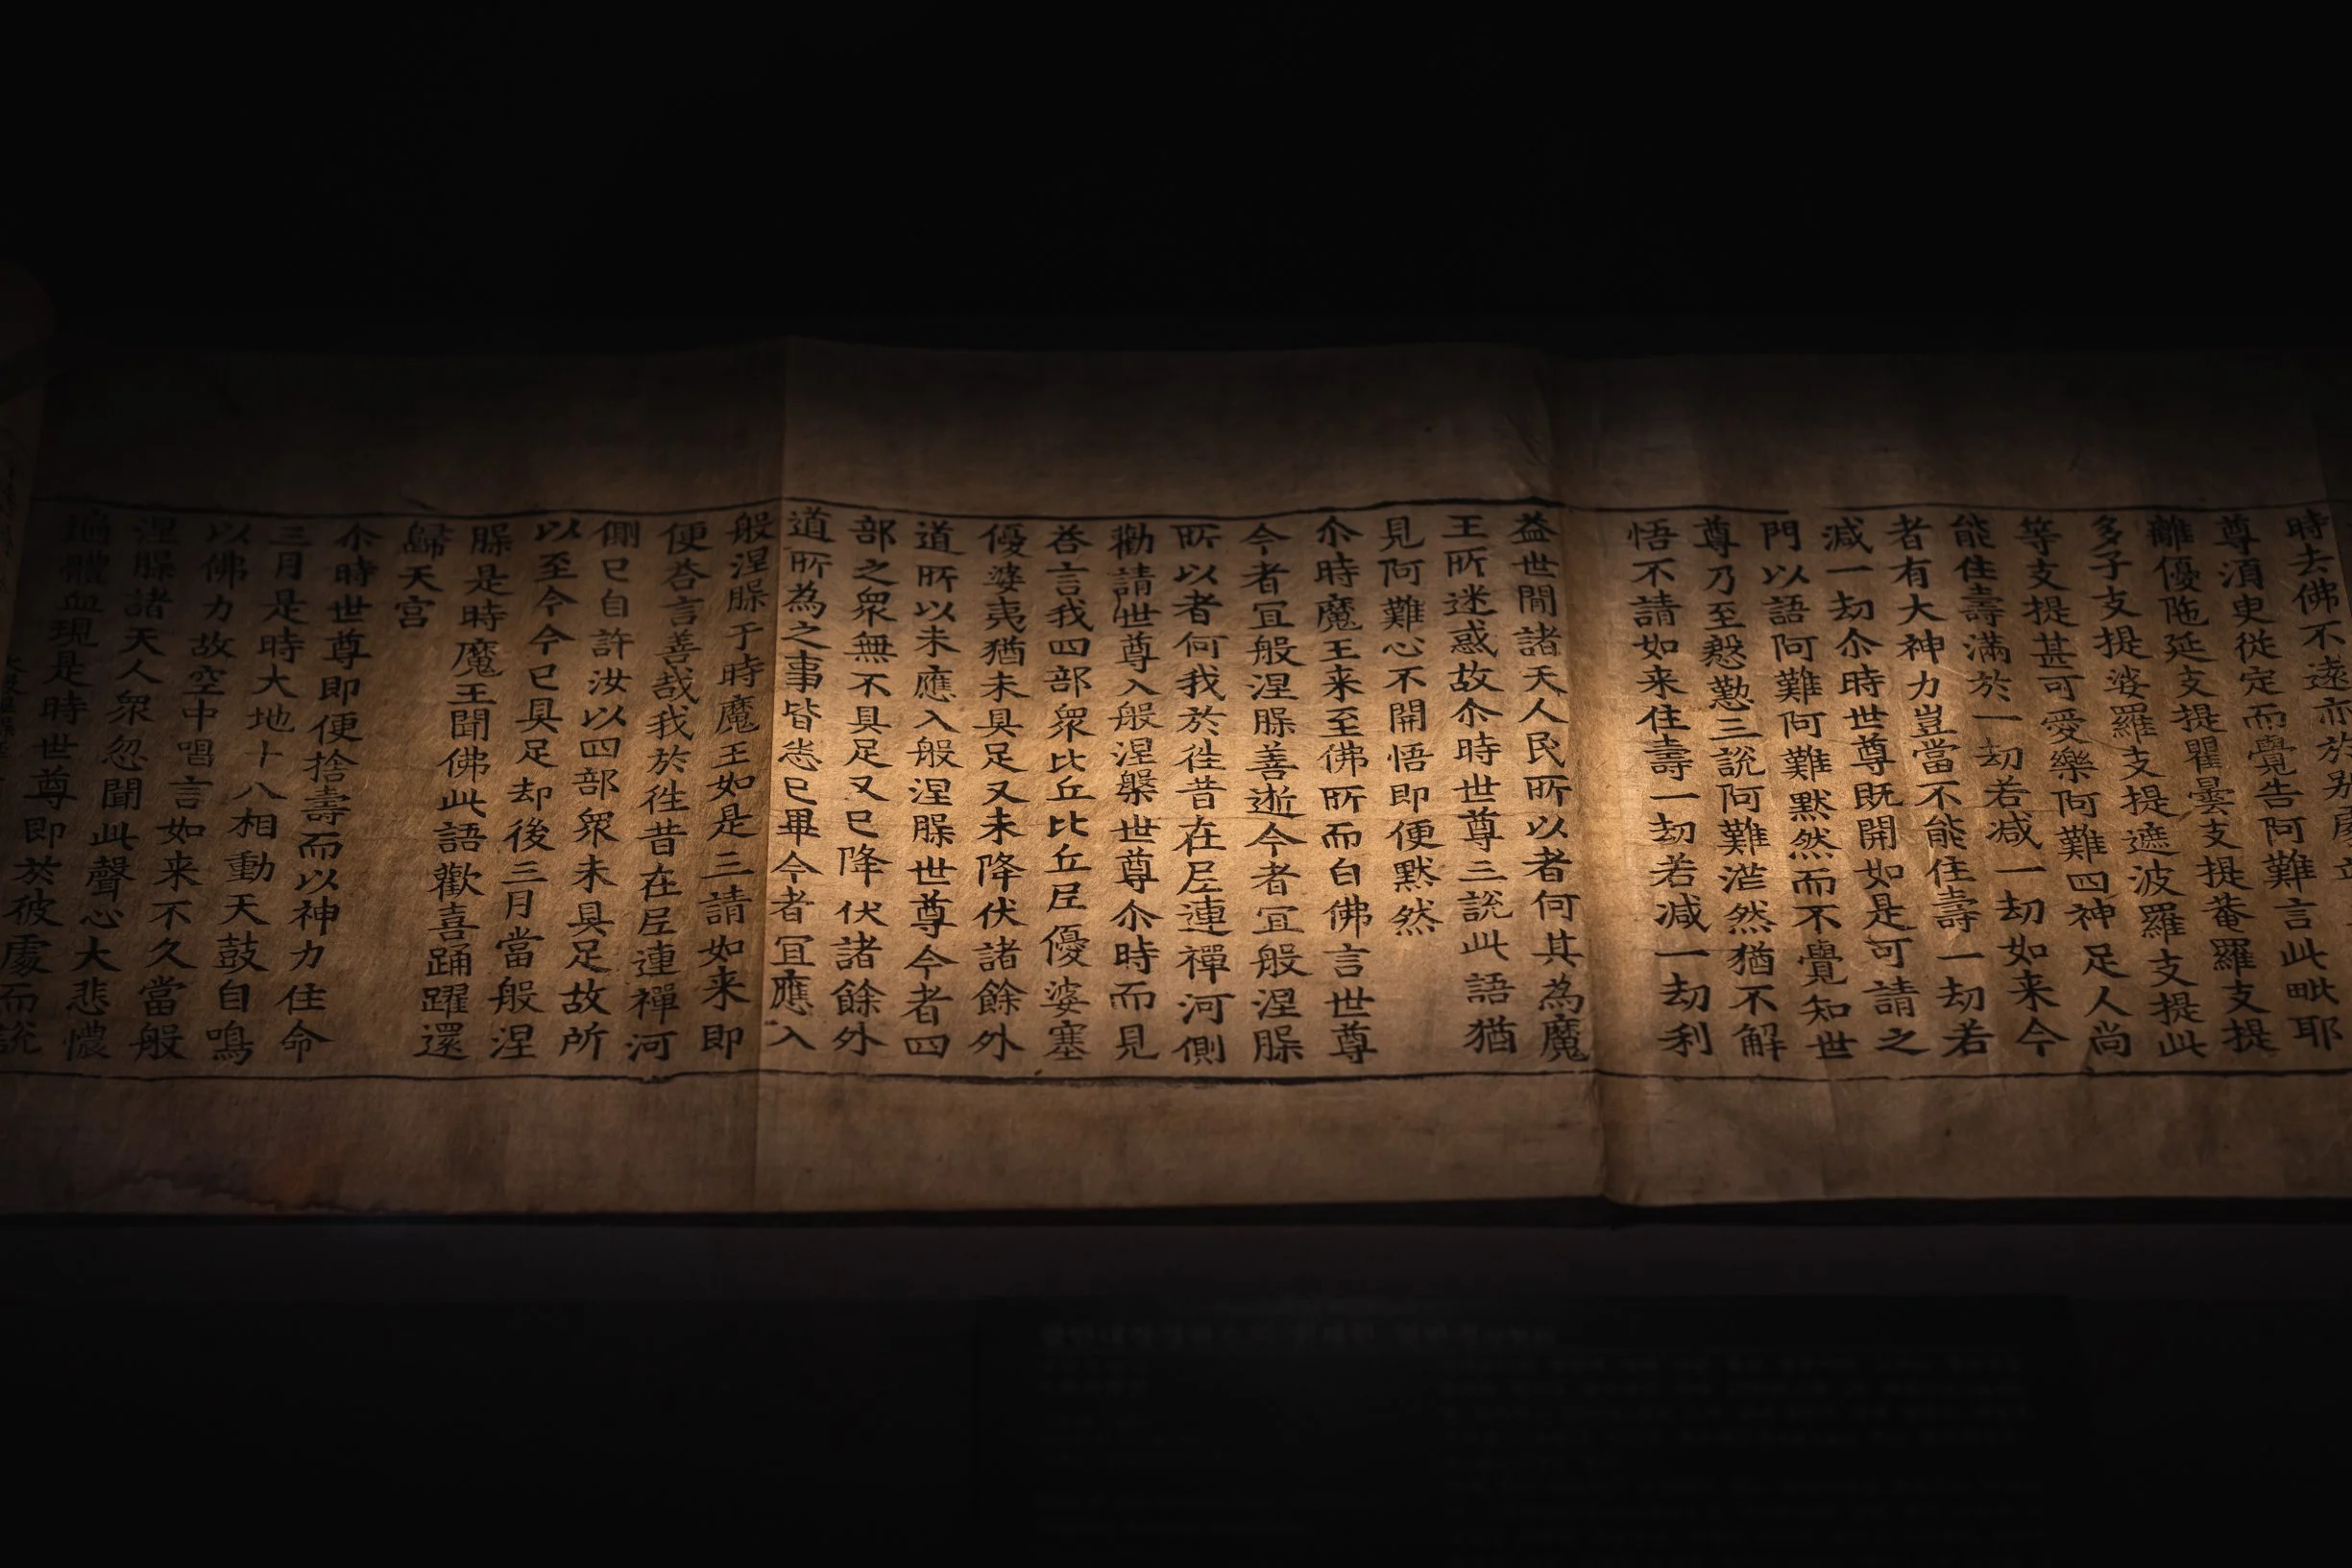 時去佛不遠亦於别處
尊湏臾從定而覺告阿難言此毗耶
離優陁延支提瞿曇支提菴羅支提
多子支提娑羅支提遮波羅支提此
等支提甚可愛樂阿難四神足人尚
能住壽滿於一劫若減一劫如来今
者有大神力豈當不能住壽一劫若
減一劫尒時世尊既開如是可請之
門以語阿難阿難默然而不覺知世
尊乃至慇懃三說阿難茫然猶不解
悟不請如来住壽一劫若減一劫利
益世間諸天人民所以者何其為魔
王所迷惑故尒時世尊三說此語猶
見阿難心不開悟即便默然
尒時魔王来至佛所而白佛言世尊
今者冝般涅䐿善逝今者冝般涅䐿
所以者何我於徃昔在尼連禪河側
勸請世尊入般涅槃世尊尒時而見
荅言我四部衆比丘比丘尼優婆塞
優婆夷猶未具足又未降伏諸餘外
道所以未應入般涅䐿世尊今者四
部之衆無不具足又已降伏諸餘外
道所為之事皆悉已畢今者冝應入
般涅䐿于時魔王如是三請如来即
便荅言善哉我於徃昔在尼連禪河
側已自許汝以四部衆未具足故所
以至今今已具足却後三月當般涅
䐿是時魔王聞佛此語歡喜踊躍還
歸天宮
尒時世尊即便捨壽而以神力住命
三月是時大地十八相動天鼓自鳴
以佛力故空中唱言如来不久當般
涅䐿諸天人衆忽聞此聲心大悲憹
遍體血現是時世尊即於彼處而說